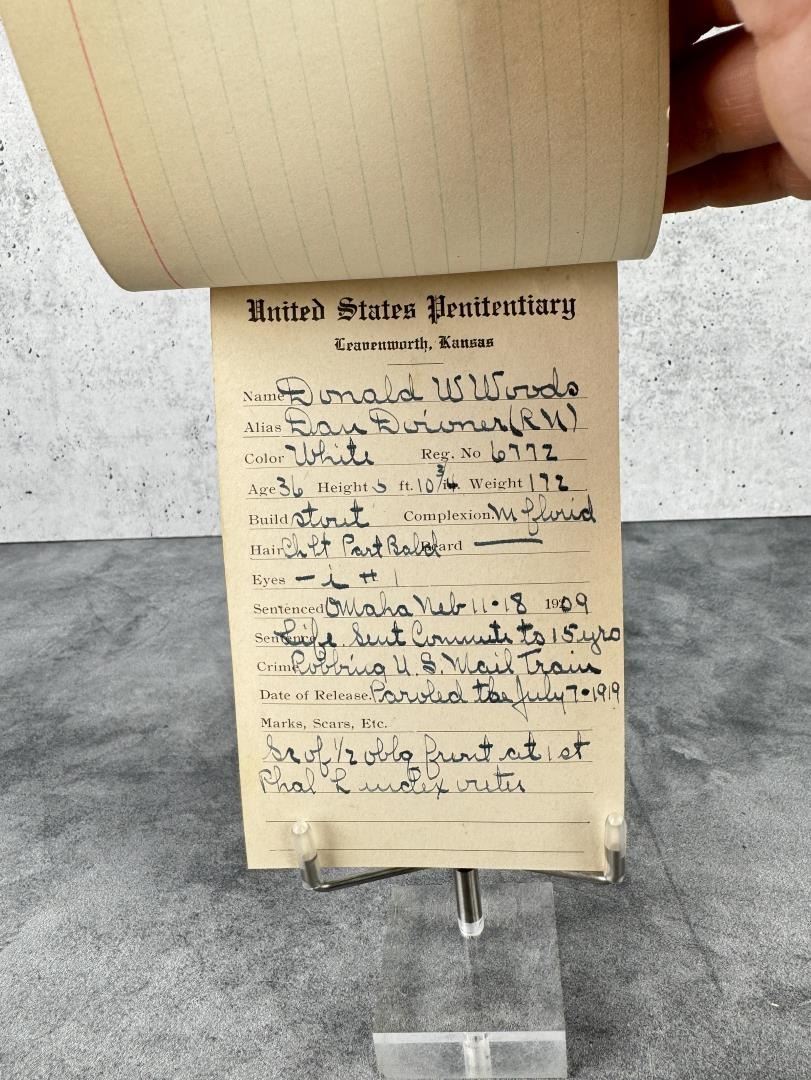 United States Penitentiary
Leavenworth, Kansas
Name Donald W Woods
Alias Dan Downer (RN)
Color White Reg. No 6772
Age 36 Height 5 ft. 10 3/4 in. Weight 172
Build stout Complexion. M florid
Hair Ch Lt Part Bald Beard —
Eyes
Sentenced Omaha Neb 11-18 1909
Sentence Life Sent Commute to 15 yrs
Crime Robbing U.S. Mail Train
Date of Release. Paroled the July 7-1919
Marks, Scars, Etc.
Sc of 1/2 oblq front at 1st
Phal L index